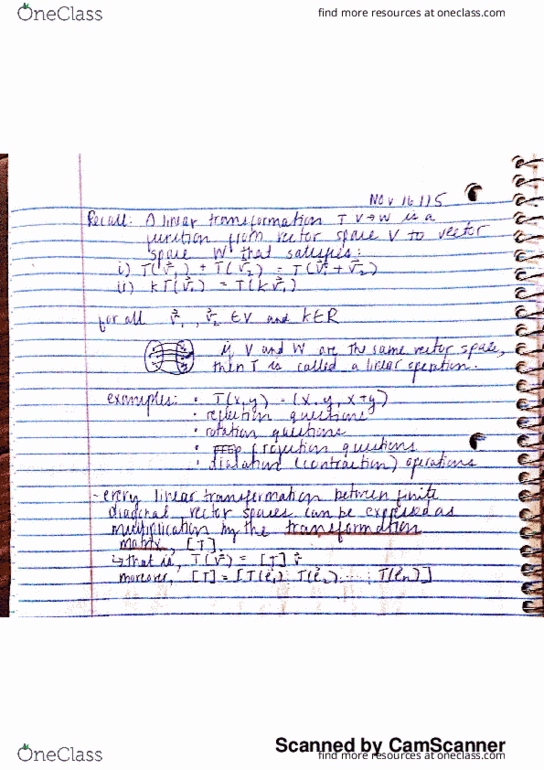 OneClass
find more resources at oneclass.com
Nov 16/15
Recall: A linear transformation T V→W is a
function from vector space V to vector
space W that satisfies:
i) T(v⃗₁) + T(v⃗₂) = T(v⃗₁ + v⃗₂)
ii) kT(v⃗₁) = T(kv⃗₁)
for all v⃗₁, v⃗₂ ∈V and k∈R
if V and W are the same vector space,
then T is called a linear operation.
examples: • T(x,y) = (x-y, x+y)
• reflection questions
• rotation questions
• projection questions
• dialation (contraction) operations
- every linear transformation between finite
diagonal vector spaces can be expressed as
multiplication by the transformation
matrix, [T].
↳ that is, T(v⃗) = [T] v⃗
moreover, [T] = [T(e⃗₁) T(e⃗₂) ... T(e⃗n)]
Scanned by CamScanner
OneClass
find more resources at oneclass.com